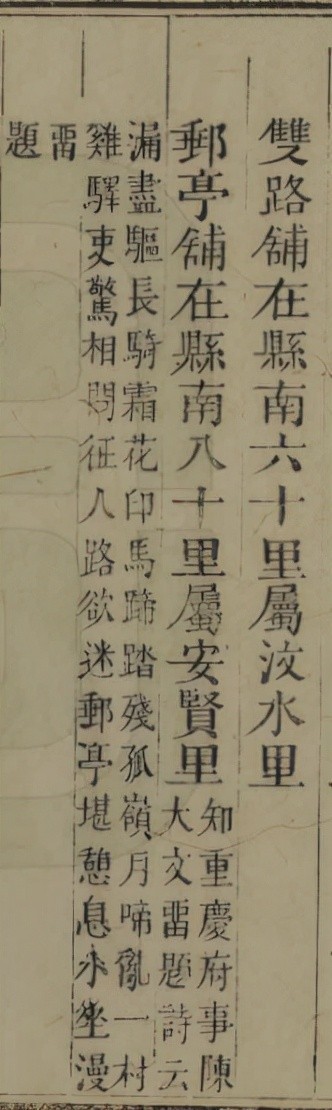 雙路舖在縣南六十里屬汶水里
郵亭舖在縣南八十里屬安賢里知重慶府事陳
大文畱題詩云
漏盡驅長騎霜花印馬蹄踏殘孤嶺月啼亂一村
雞驛吏驚相問征人路欲迷郵亭堪憩息小坐漫
畱
題